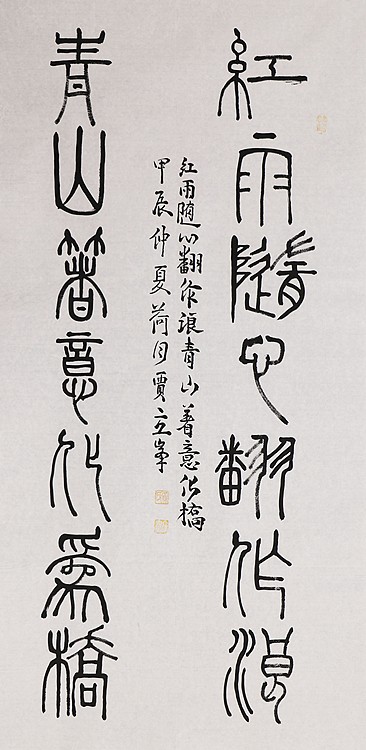 紅雨隨心翻作浪
青山箸意化爲橋
紅雨随心翻作浪青山著意化橋
甲辰仲夏荷月賈立峯